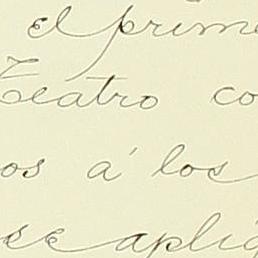 el prime
Teatro co
os á los
se aplic